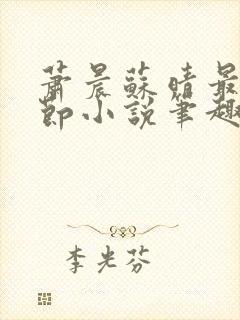 蕭晨蘇晴最
節小說筆趣
李光芬